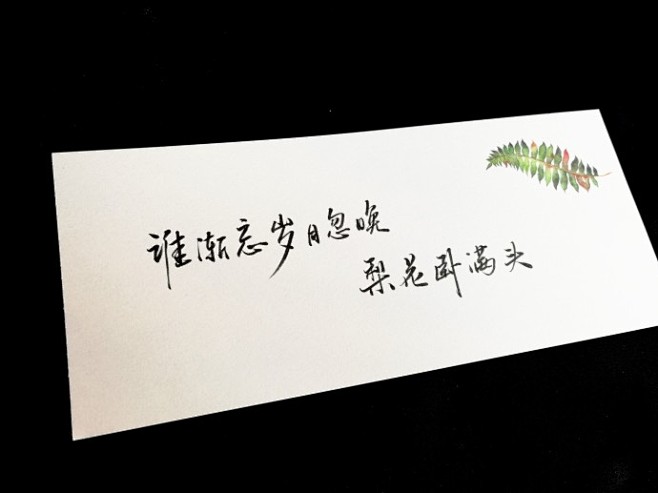 谁渐忘岁月忽晚
梨花卧满头